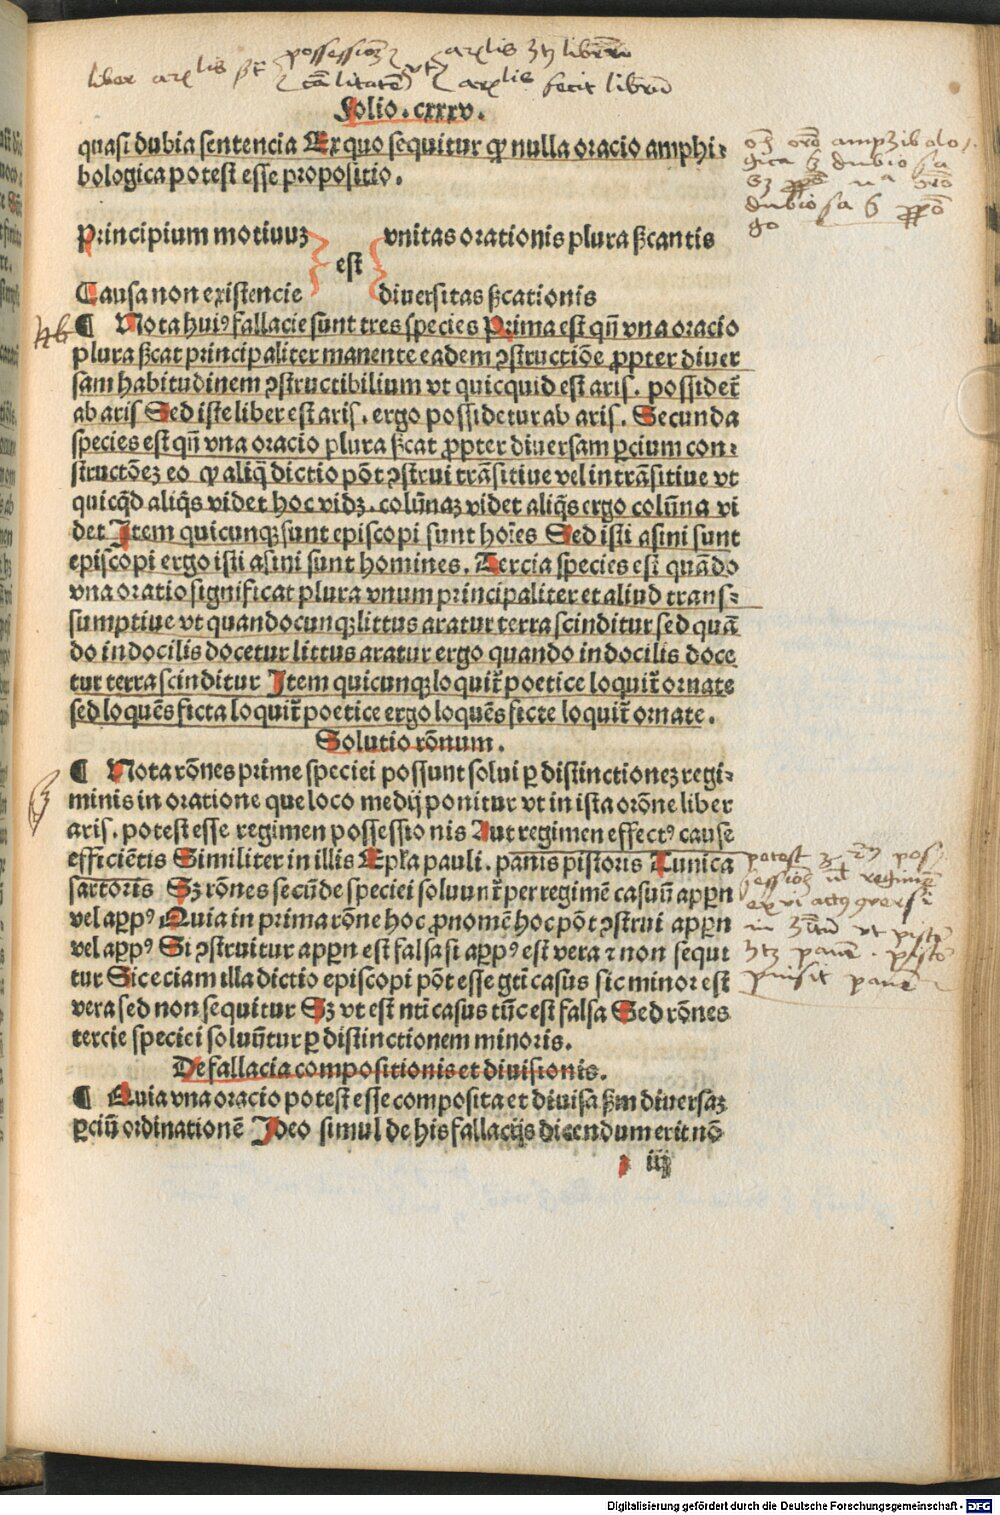 liber arlis
possessionē
cālitatē
arlis hꝫ librum
arlis fecit librū
Folio. cxxxv.
quasi dubia sentencia Ex quo sequitur ꝙ nulla oracio amphi⸗
bologica potest esse propositio.
Principium motiuuꝫ
vnitas orationis plura ßcantis
est
Causa non existencie
diuersitas ßcationis
¶ Nota huiꝰ fallacie sunt tres species Prima est qn̄ vna oracio
plura ßcat principaliter manente eadem ꝯstructiōe ꝓpter diuer
sam habitudinem ꝯstructibilium vt quicquid est aris. possidet᷑
ab aris Sed iste liber est aris. ergo possidetur ab aris. Secunda
species est qn̄ vna oracio plura ßcat ꝓpter diuersam ꝑcium con⸗
structōeꝫ eo ꝙ aliq̄ dictio pōt ꝯstrui trāsitiue vel intrāsitiue vt
quicq̇d aliq̇s videt hoc vidꝫ. colūnaꝫ videt aliq̇s ergo colūna vi
det Item quicunqꝫ sunt episcopi sunt hoīes Sed isti asini sunt
episcopi ergo isti asini sunt homines. Tercia species est quādo
vna oratio significat plura vnum principaliter et aliud trans⸗
sumptiue vt quandocunqꝫ littus aratur terra scinditur sed quā
do indocilis docetur littus aratur ergo quando indocilis doce
tur terra scinditur Item quicunqꝫ loquit᷑ poetice loquit᷑ ornate
sed loquēs ficta loquit᷑ poetice ergo loquēs ficte loquit᷑ ornate.
Solutio rōnum.
¶ Nota rōnes prime speciei possunt solui ꝑ distinctioneꝫ regi⸗
minis in oratione que loco medij ponitur vt in ista orōne liber
aris. potest esse regimen possessionis Aut regimen effectꝰ cause
efficiētis Similiter in illis Epła pauli. panis pistoris Tunica
sartoris Sꝫ rōnes secūde speciei soluunt᷑ per regimē casuū appn̄
vel appꝰ Quia in prima rōne hoc ꝓnomē hoc pōt ꝯstrui appn̄
vel appꝰ Si ꝯstruitur appn̄ est falsa si appꝰ est vera ⁊ non sequi
tur Sic eciam illa dictio episcopi pōt esse gt̄i casus sic minor est
vera sed non sequitur Sꝫ vt est nt̄i casus tūc est falsa Sed rōnes
tercie speciei soluūtur ꝑ distinctionem minoris.
De fallacia compositionis et diuisionis.
¶ Quia vna oracio potest esse composita et diuisa ßm diuersaꝫ
ꝑciū ordinationē Ideo simul de his fallacijs dicendum erit nō
iij
Digitalisierung gefördert durch die Deutsche Forschungsgemeinschaft - DFG